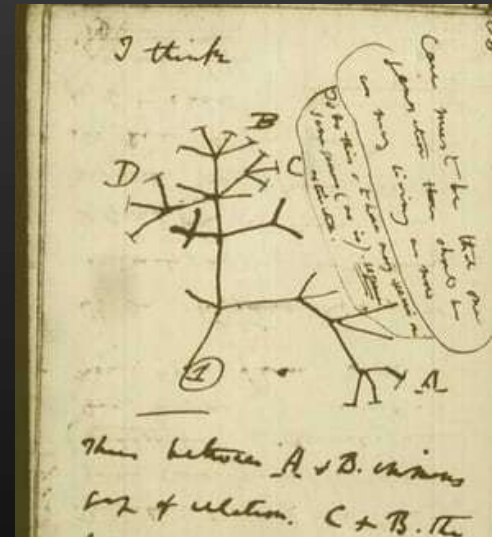 I think
Case must be that one
generation then should be
as many living as now
To do this & to have many species in
same genus (as is). requires
extinction.
B
C
D
1
A
Thus between A & B. immense
gap of relation. C & B. the